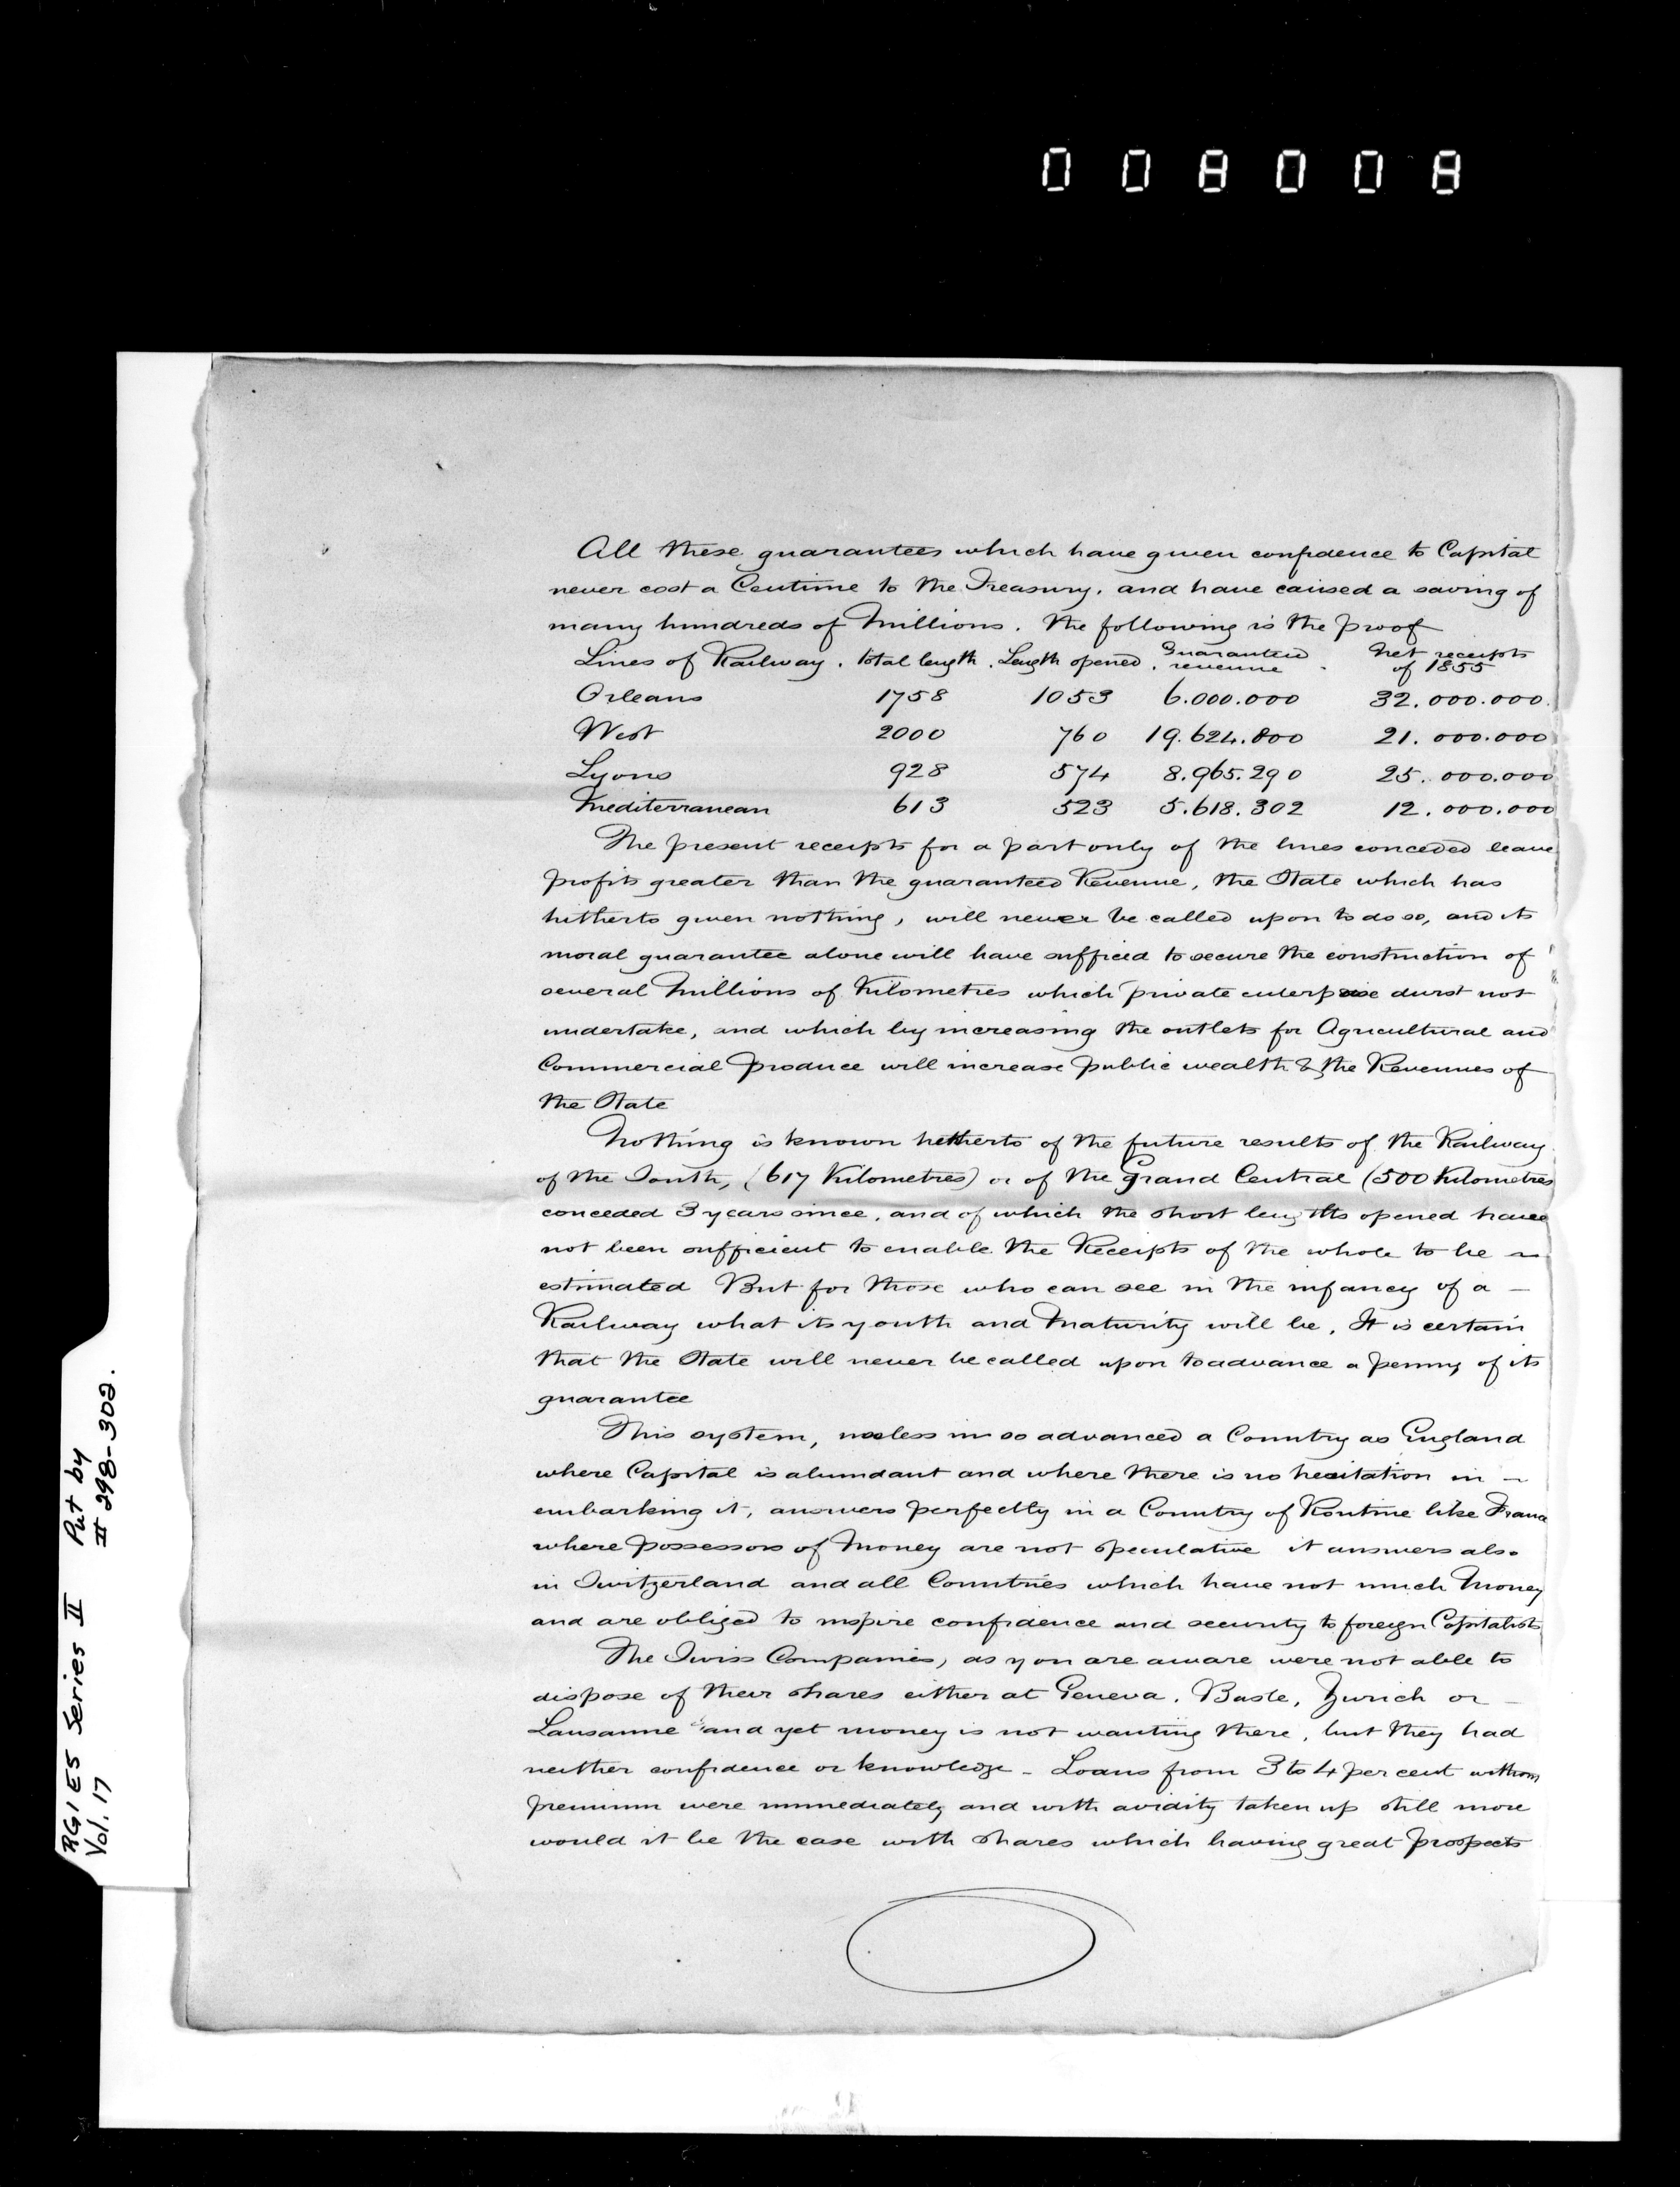 008008
All these guarantees which have given confidence to Capital
never cost a Centime to the Treasury. and have caused a saving of
many hundreds of Millions. The following is the proof
Lines of Railway. total length. Length opened. Guaranteed revenue. Net receipts of 1855
Orleans 1758 1053 6.000.000 32.000.000.
West 2000 760 19.624.800 21.000.000
Lyons 928 574 8.965.290 25.000.000
Mediterranean 613 523 5.618.302 12.000.000
The present receipts for a part only of the lines conceded leave
profits greater than the guaranteed Revenue, the State which has
hitherto given nothing, will never be called upon to do so, and its
moral guarantee alone will have sufficed to secure the construction of
several Millions of Kilometres which private enterprise durst not
undertake, and which by increasing the outlets for Agricultural and
Commercial produce will increase public wealth & the Revenues of
the State
Nothing is known hitherto of the future results of the Railway
of the South, (617 Kilometres) or of the Grand Central (500 Kilometres
conceded 3 years since, and of which the short lengths opened have
not been sufficient to enable the Receipts of the whole to be
estimated But for those who can see in the infancy of a –
Railway what its youth and Maturity will be, It is certain
that the State will never be called upon to advance a penny of its
guarantee
This system, useless in so advanced a Country as England
where Capital is abundant and where there is no hesitation in –
embarking it, answers perfectly in a Country of Routine like France
where possessors of Money are not speculative it answers also
in Switzerland and all Countries which have not much Money
and are obliged to inspire confidence and security to foreign Capitalists
The Swiss Companies, as you are aware were not able to
dispose of their shares either at Geneva, Basle, Zurich or –
Lausanne and yet money is not wanting there, but they had
neither confidence or knowledge – Loans from 3 to 4 per cent without
premium were immediately and with avidity taken up still more
would it be the case with shares which having great prospects
RG1 E5 Series II Put by
Vol. 17 II 298-302.